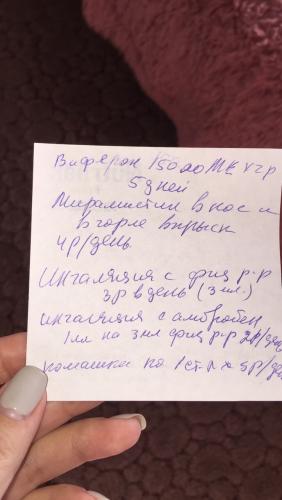 Виферон 150000 МЕ х 2р
5 дней
Мирамистин в нос и
в горле впрыск
4р/день
Ингаляция с физ р-р
3р в день (3 мл.)
ингаляция с амбробен
1мл на 3 мл физ р-р 2р/день
ромашка по 1 ст. л х 5р/день